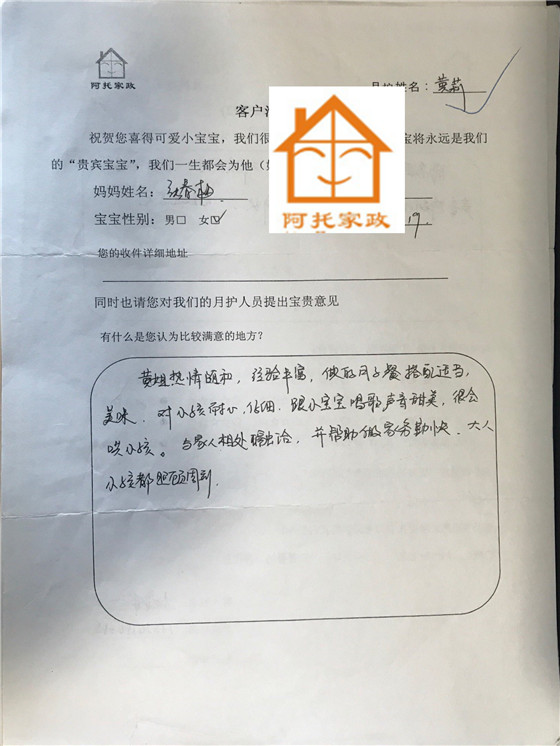 阿托家政
月护姓名：黄莉
客户
祝贺您喜得可爱小宝宝，我们很 宝将永远是我们
的“贵宾宝宝”，我们一生都会为他（
阿托家政
妈妈姓名：春梅
宝宝性别： 男□ 女☑ 19.
您的收件详细地址
同时也请您对我们的月护人员提出宝贵意见
有什么是您认为比较满意的地方？
黄姐热情随和，经验丰富，做的月子餐搭配适当，
美味．对小孩耐心，仔细．跟小宝宝唱歌声音甜美，很会
哄小孩。与家人相处融洽，并帮助做家务，大人
小孩都照顾周到．